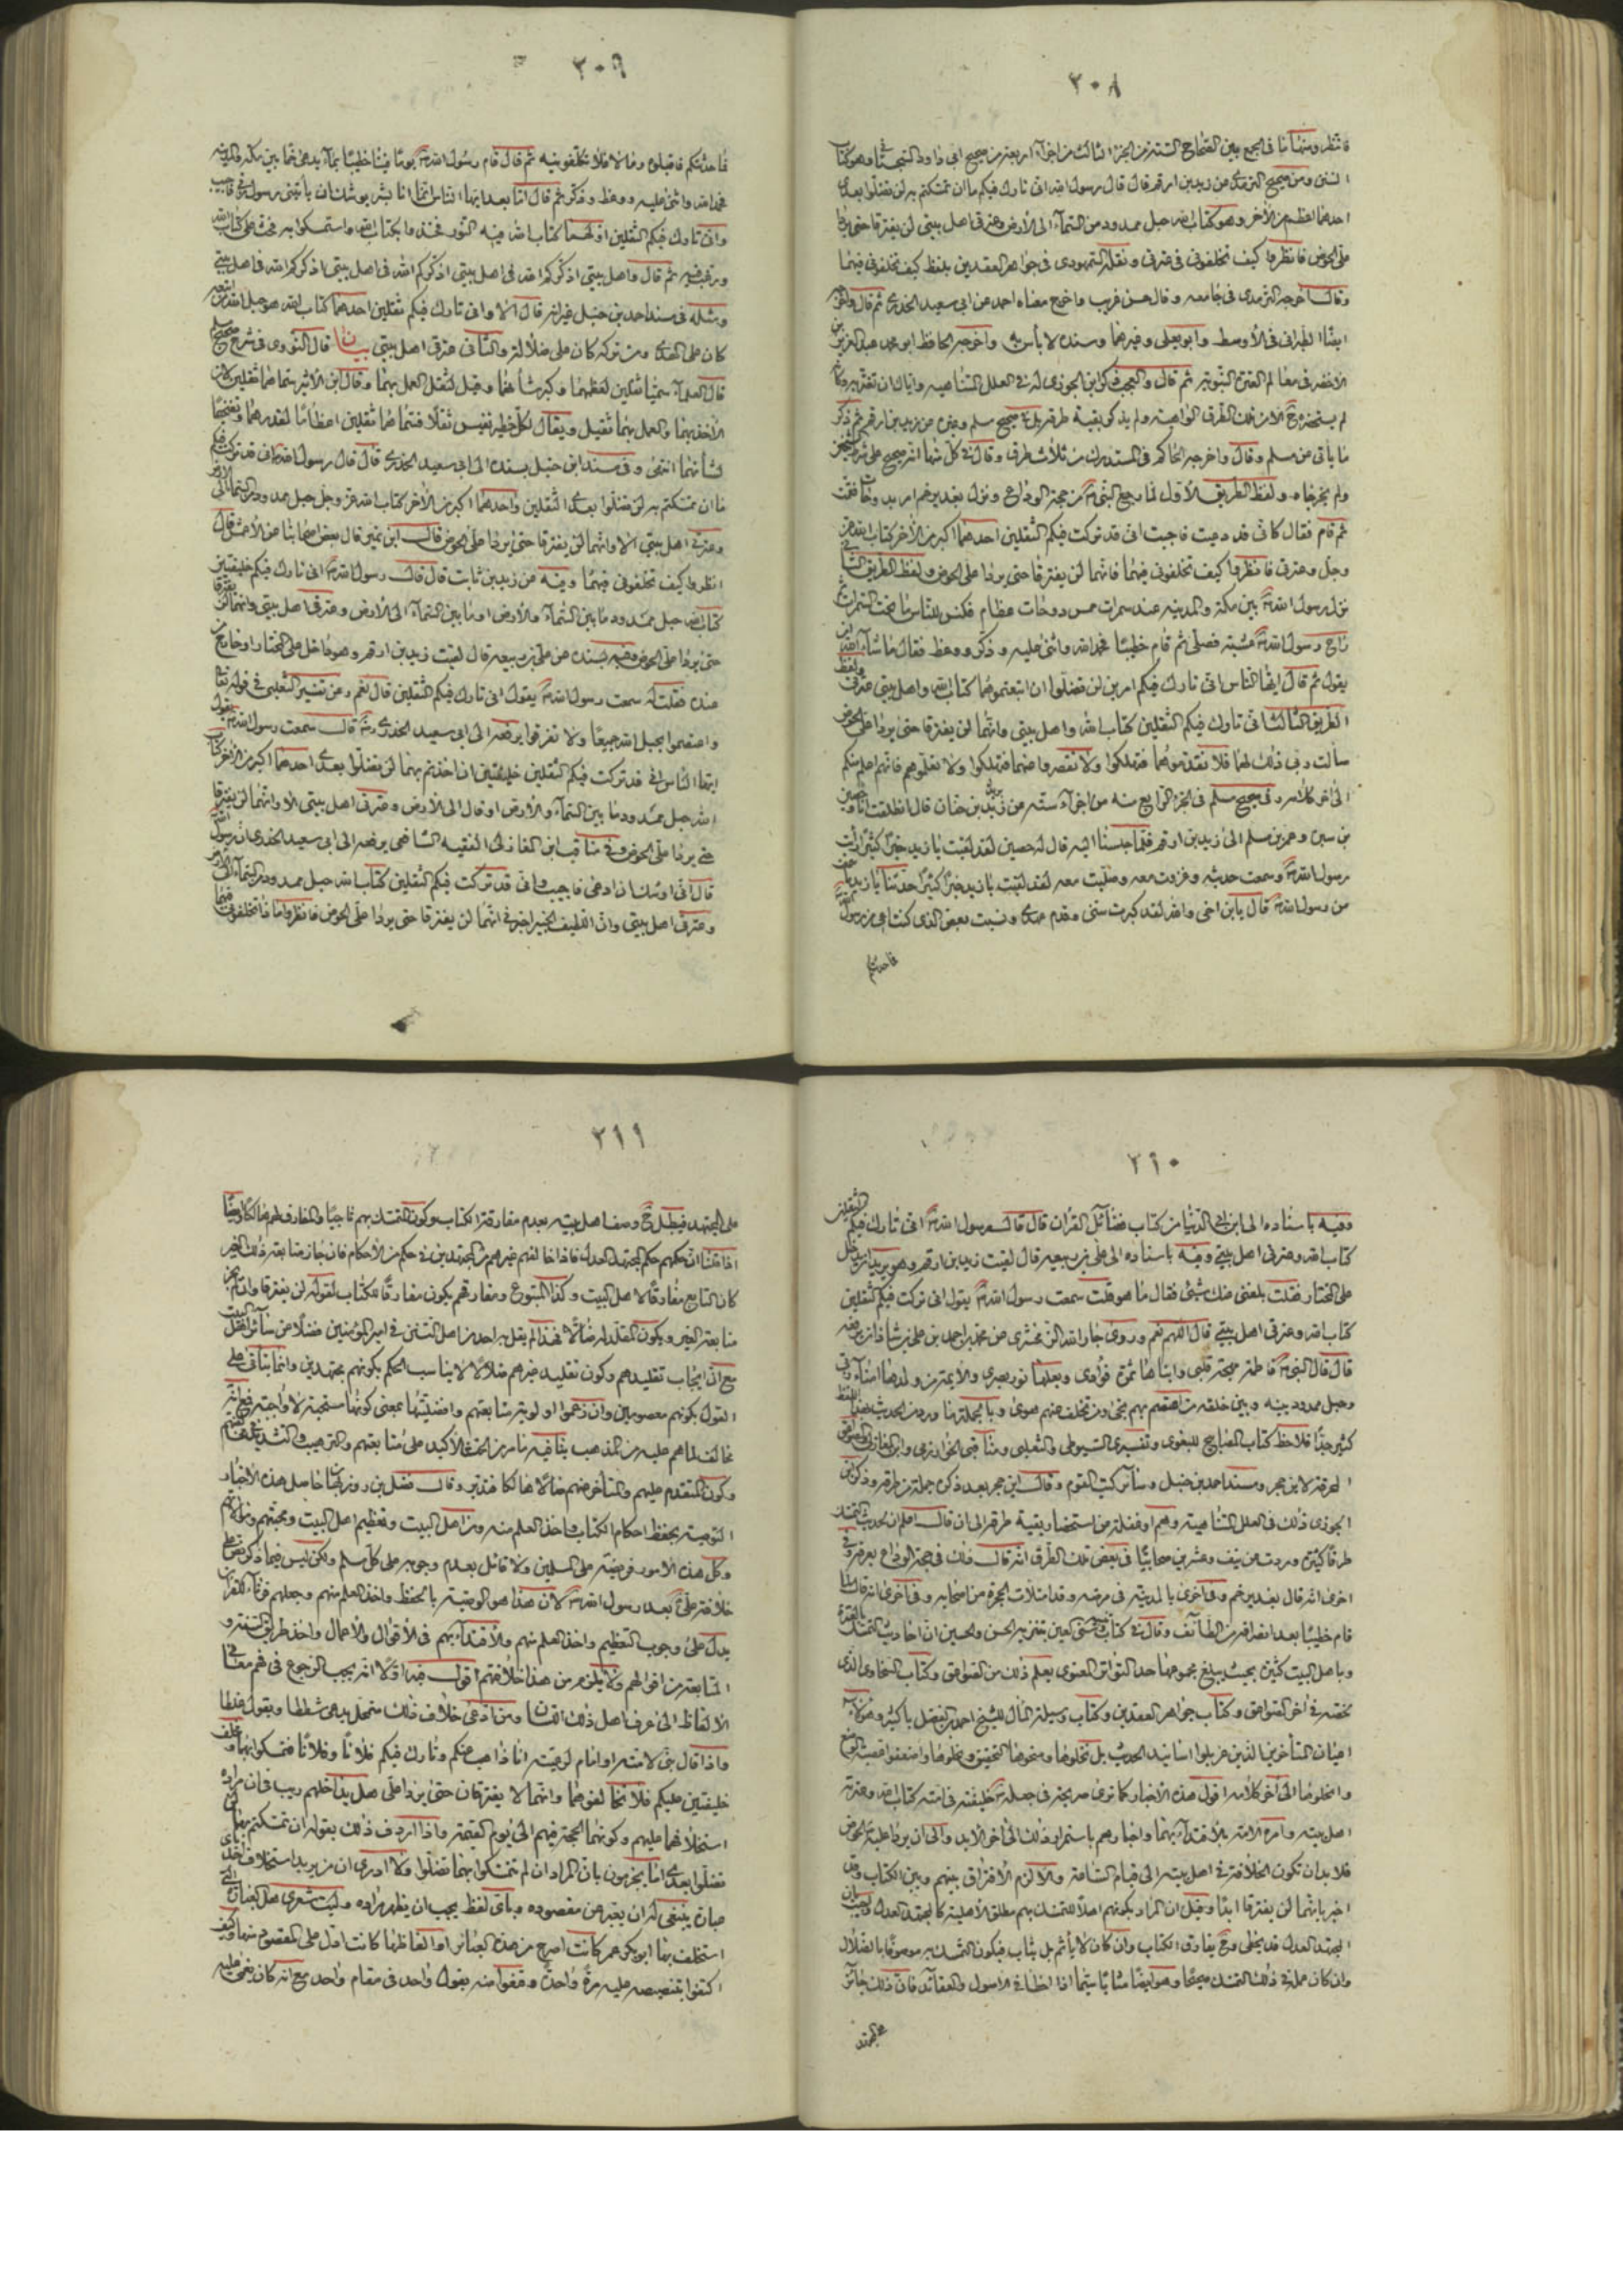 ٢٠٨
فانظر ومنها ما فى الجمع بين الصحاح الستة من الجزء الثالث من اجزاء اربعة من صحيح ابى داود السجستانى وهو كتاب
السنن ومن صحيح الترمذى عن زيد بن ارقم قال قال رسول الله انى تارك فيكم ما ان تمسكتم به لن تضلوا بعدى
احدهما اعظم من الآخر وهو كتاب الله حبل ممدود من السماء الى الارض وعترتى اهل بيتى لن يفترقا حتى يردا
على الحوض فانظروا كيف تخلفونى فى عترتى ونقله السمهودى فى جواهر العقدين بلفظ كيف تخلفونى فيهما
وقال اخرجه الترمذى فى جامعه وقال حسن غريب واخرج معناه احمد عن ابى سعيد الخدرى ثم قال واخرجه
ايضا الطبرانى فى الأوسط وابو يعلى وغيرهما وسنده لا بأس به واخرجه الحافظ ابو محمد عبد العزيز بن
الاخضر فى معالم العترة النبوية ثم قال والعجب ذكر ابن الجوزى له فى العلل المتناهيه واياك ان تغتر به وكانه
لم يستحضره ح الا من تلك الطرق الواهية ولم يذكر بقية طرقه بل فى صحيح مسلم وغيره عن زيد بن ارقم ثم ذكر
ما يأتى من مسلم وقال واخرجه الحاكم فى المستدرك من ثلاث طرق وقال فى كل منها انه صحيح على شرط الشيخين
ولم يخرجاه ولفظ الطريق الأول لما رجع النبى من حجة الوداع ونزل بغدير خم امر بدوحات فقمت
ثم قام فقال كانى قد دعيت فاجبت انى قد تركت فيكم الثقلين احدهما اكبر من الآخر كتاب الله عز
وجل وعترتى فانظروا كيف تخلفونى فيهما فانهما لن يفترقا حتى يردا على الحوض ولفظ الطريق الثانى
نزل رسول الله بين مكة والمدينه عند سمرات خمس دوحات عظام فكنس للناس ما تحت السمرات ثم
راح رسول الله عشية فصلى ثم قام خطيبا فحمد الله واثنى عليه وذكر ووعظ فقال ما شاء الله ان
يقول ثم قال ايها الناس انى تارك فيكم امرين لن تضلوا ان اتبعتموهما كتاب الله واهل بيتى عترتى ولفظ
الطريق الثالث انى تارك فيكم الثقلين كتاب الله واهل بيتى وانهما لن يفترقا حتى يردا على الحوض
سألت ربى ذلك لهما فلا تقدموهما فتهلكوا ولا تقصروا عنهما فتهلكوا ولا تعلموهم فانهم اعلم منكم
الى اخر كلامه وفى صحيح مسلم فى الجزء الرابع منه من اجزاء ستة عن يزيد بن حيان قال انطلقت انا وحصين
بن سبره وعمر بن مسلم الى زيد بن ارقم فلما جلسنا اليه قال له حصين لقد لقيت يا زيد خيرا كثيرا رأيت
رسول الله وسمعت حديثه وغزوت معه وصليت معه لقد لقيت يا زيد خيرا كثيرا حدثنا يا زيد ما سمعت
من رسول الله قال يا بن اخى والله لقد كبرت سنى وقدم عهدى ونسيت بعض الذى كنت اعى من رسول الله
فما حدثتكم
٢٠٩
فما حدثتكم فاقبلوه وما لا فلا تكلفونيه ثم قال قام رسول الله يوما فينا خطيبا بماء يدعى خما بين مكة والمدينه
فحمد الله واثنى عليه ووعظ وذكر ثم قال اما بعد ايها الناس انما انا بشر يوشك ان يأتينى رسول ربى فاجيب
وانى تارك فيكم الثقلين اولهما كتاب الله فيه النور فخذوا بكتاب الله واستمسكوا به فحث على كتاب الله
ورغب فيه ثم قال واهل بيتى اذكركم الله فى اهل بيتى اذكركم الله فى اهل بيتى اذكركم الله فى اهل بيتى
ومثله فى مسند احمد بن حنبل غير انه قال الا وانى تارك فيكم ثقلين احدهما كتاب الله هو حبل الله من اتبعه
كان على الهدى ومن تركه كان على ضلالة والثانى عترتى اهل بيتى بيان قال النووى فى شرح صحيح مسلم
قال العلماء سميا ثقلين لعظمهما وكبر شأنهما وقيل لثقل العمل بهما وقال ابن الأثير سماهما ثقلين لان
الأخذ بهما والعمل بهما ثقيل ويقال لكل خطير نفيس ثقل فسماهما ثقلين اعظاما لقدرهما وتفخيما
لشأنهما انتهى وفى مسند ابن حنبل بسنده الى ابى سعيد الخدرى قال قال رسول الله انى قد تركت فيكم
ما ان تمسكتم به لن تضلوا بعدى الثقلين واحدهما اكبر من الآخر كتاب الله عز وجل حبل ممدود من السماء الى الارض
وعترتى اهل بيتى الا وانهما لن يفترقا حتى يردا على الحوض قال ابن نمير قال بعض اصحابنا عن الأعمش قال
انظروا كيف تخلفونى فيهما وفيه عن زيد بن ثابت قال قال رسول الله انى تارك فيكم خليفتين
كتاب الله حبل ممدود ما بين السماء والأرض او ما بين السماء الى الارض وعترتى اهل بيتى وانهما لن يفترقا
حتى يردا على الحوض وفيه بسنده عن على بن ربيعه قال لقيت زيد بن ارقم وهو داخل على المختار او خارج من
عنده فقلت له سمعت رسول الله يقول انى تارك فيكم الثقلين قال نعم وعن تفسير الثعلبى فى قوله تعالى
واعتصموا بحبل الله جميعا ولا تفرقوا يرفعه الى ابى سعيد الخدرى قال سمعت رسول الله يقول
ايها الناس انى قد تركت فيكم الثقلين خليفتين ان اخذتم بهما لن تضلوا بعدى احدهما اكبر من الآخر كتاب
الله حبل ممدود ما بين السماء والارض او قال الى الأرض وعترتى اهل بيتى الا وانهما لن يفترقا
حتى يردا على الحوض وفى مناقب ابن المغازلى الفقيه الشافعى يرفعه الى ابى سعيد الخدرى ان رسول الله
قال انى اوشك ان ادعى فاجيب وانى قد تركت فيكم الثقلين كتاب الله حبل ممدود من السماء الى الارض
وعترتى اهل بيتى وان اللطيف الخبير اخبرنى انهما لن يفترقا حتى يردا على الحوض فانظروا ما ذا تخلفونى فيهما
٢١٠
وفيه باسناده الى ابن ابى الدنيا من كتاب فضائل القرآن قال قال رسول الله انى تارك فيكم الثقلين
كتاب الله وعترتى اهل بيتى وفيه باسناده الى على بن ربيعه قال لقيت زيد بن ارقم وهو يريد ان يدخل
على المختار فقلت بلغنى عنك شىء فقال ما هو قلت سمعت رسول الله يقول انى تركت فيكم الثقلين
كتاب الله وعترتى اهل بيتى قال اللهم نعم وروى جار الله الزمخشرى عن محمد بن احمد بن على بن شاذان يرفعه
قال قال النبى فاطمة مهجة قلبى وابناها ثمرة فؤادى وبعلها نور بصرى والأئمة من ولدها امناء ربى
وحبل ممدود بينه وبين خلقه من اعتصم بهم نجى ومن تخلف عنهم هوى وبالجملة ما ورد من الحديث بهذا اللفظ
كثير جدا فلاحظ كتاب المصابيح للبغوى وتفسيرى السيوطى والثعلبى ومناقبى الخوارزمى وابن المغازلى والصواعق
المحرقة لابن حجر ومسند احمد بن حنبل وسائر كتب القوم وقال ابن حجر بعد ذكر جملة من طرقه وذكر ابن
الجوزى ذلك فى العلل المتناهية وهم او غفلة عن استحضار بقية طرقه الى ان قال اعلم ان لحديث التمسك
طرقا كثيرة وردت عن نيف وعشرين صحابيا فى بعض تلك الطرق انه قال ذلك فى حجة الوداع بعرفة وفى
اخرى انه قال بغدير خم وفى اخرى بالمدينة فى مرضه وقد امتلأت الحجرة من اصحابه وفى اخرى انه قال لما
قام خطيبا بعد انصرافه من الطائف وقال فى كتاب العين بتنزيه الحسن والحسين ان احاديث التمسك بالعترة
وباهل البيت كثيرة بحيث يبلغ مجموعها حد التواتر المعنوى يعلم ذلك من الصواعق وكتاب السخاوى الذى
لخصته فى اخر الصواعق وكتاب جواهر العقدين وكتاب وسيلة المآل للشيخ احمد بن الفضل باكثير وهؤلاء
اعيان المتأخرين الذين غربلوا اسانيد الحديث بل نخلوها
وانخلوها الى اخر كلامه اقول هذه الأخبار كما ترى صريحة فى جعله خليفته فى امته كتاب الله وعترته
اهل بيته وامره الامة بالأقتداء بهما واخبارهم باستمرار ذلك الى اخر الأبد والى ان يردا عليه الحوض
فلا بد ان تكون الخلافة فى اهل بيته الى قيام الساعة والا لزم الأفتراق بينهم وبين الكتاب وقد
اخبر بانهما لن يفترقا ابدا وقيل ان المراد بكونهم اهلا للتمسك بهم مطلق الأهلية كالمجتهد العدل
المجتهد العدل قد يخطى وح يفارق الكتاب وان كان لا يأثم بل يثاب فيكون التمسك به موصوفا بالضلال
وان كان عمله فى ذلك التمسك صحيحا وهو ايضا مثابا سيما اذا اخطأ فى الأصول والعقائد فان ذلك جائز
على المجتهد
٢١١
على المجتهد فيبطل ح وصف اهل بيته بعدم مفارقة الكتاب وكون المتمسك بهم ناجيا والمفارق لهم هالكا وايضا
اذا قلنا ان حكمهم حكم المجتهد العدل فاذا خالفهم غيرهم من المجتهدين فى حكم من الأحكام فان جاز متابعة ذلك الغير
كان التابع مفارقا لاهل البيت وكذا المتبوع ومفارقهم يكون مفارقا للكتاب لقوله لن يفترقا وان لم يجز
متابعة الغير ويكون المقلد له ضالا فهذا لم يقل به احد من اهل التسنن فى امير المؤمنين فضلا من سائر اهل البيت
مع ان ايجاب تقليدهم وكون تقليد غيرهم ضلالا لا يناسب الحكم بكونهم مجتهدين وانما يتأتى على
القول بكونهم معصومين وان زعموا اولوية متابعتهم وافضليتها بمعنى كونها مستحبة لا واجبة فمع انه
مخالف لما هم عليه من المذهب ينافيه ما مر من الحث الأكيد على متابعتهم والترهيب والتشديد على مخالفتهم
وكون المتقدم عليهم والمتأخر عنهم ضالا هالكا فتدبر وقال فضل بن روزبهان حاصل هذه الأخبار
التوصية بحفظ احكام الكتاب واخذ العلم منه ومن اهل البيت وتعظيم اهل البيت ومحبتهم وموالاتهم
وكل هذه الامور فريضة على المسلمين ولا قائل بعدم وجوبه على كل مسلم ولكن ليس فيما ذكر نص على
خلافة على بعد رسول الله لان هذا هو الوصية بالحفظ واخذ العلم منهم وجعلهم قرناء للقرآن
يدل على وجوب التعظيم واخذ العلم منهم والأقتداء بهم فى الأقوال والأعمال واخذ طريق السنة و
المتابعة من اقوالهم ولا يلزم من هذا خلافتهم اقول فيه اولا انه يجب الرجوع فى فهم معانى
الألفاظ الى عرف اهل ذلك اللسان ومن ادعى خلاف ذلك متمحل يدعى شططا ويقول غلطا
واذا قال نبى لامته او امام لرعيته انا ذاهب عنكم وتارك فيكم فلانا وفلانا فتمسكوا بهما ومخلف
خليفتين عليكم فلا تخالفوهما وانهما لا يفترقان حتى يردا على هل يداخلهم ريب فى ان مراده
استخلافهما عليهم وكونهما الحجة فيهم الى يوم القيمة واذا اردف ذلك بقوله ان تمسكتم بهما لن
تضلوا بعدى اما يجزمون بان المراد ان لم تتمسكوا بهما تضلوا ولا ادرى ان من يريد استخلاف احد باى
عبارة ينبغى له ان يعبر عن مقصوده وباى لفظ يجب ان يظهر مراده وليت شعرى هل العبارة التى
استخلف بها ابو بكر عمر كانت اصرح من هذه العبائر او الفاظها كانت ادل على المقصود منها وكيف
اكتفوا بتنصيصه عليه مرة واحدة وقنعوا منه بقول واحد فى مقام واحد مع انه كان